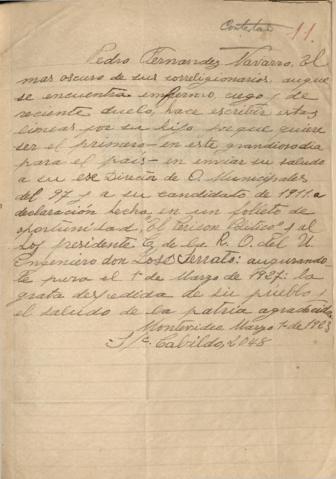 Contestar 11.
Pedro Fernandez Navarro, El
mas oscuro de sus correligionarios, auque
se encuentra enfermo, ciego y de
reciente duelo, hace escribir estas
lineas por su hijo porque quiere
ser el primero - en este grandioso dia
para el pais - en inviar su saludo
a su ex Director de O. Municipales
del 97 y a su candidato de 1911. a
declaración hecha en un folleto de
oportunidad "El Porison Politico" y al
hoy presidente C. de la R. O. del U.
Engeniero don José Serrato: augurando
le para el 1º de Marzo de 1927: la
grata despedida de su pueblo y
el saludo de la patria agradecida
Montevideo Marzo 1º de 1923
S/c. Cabildo, 2048